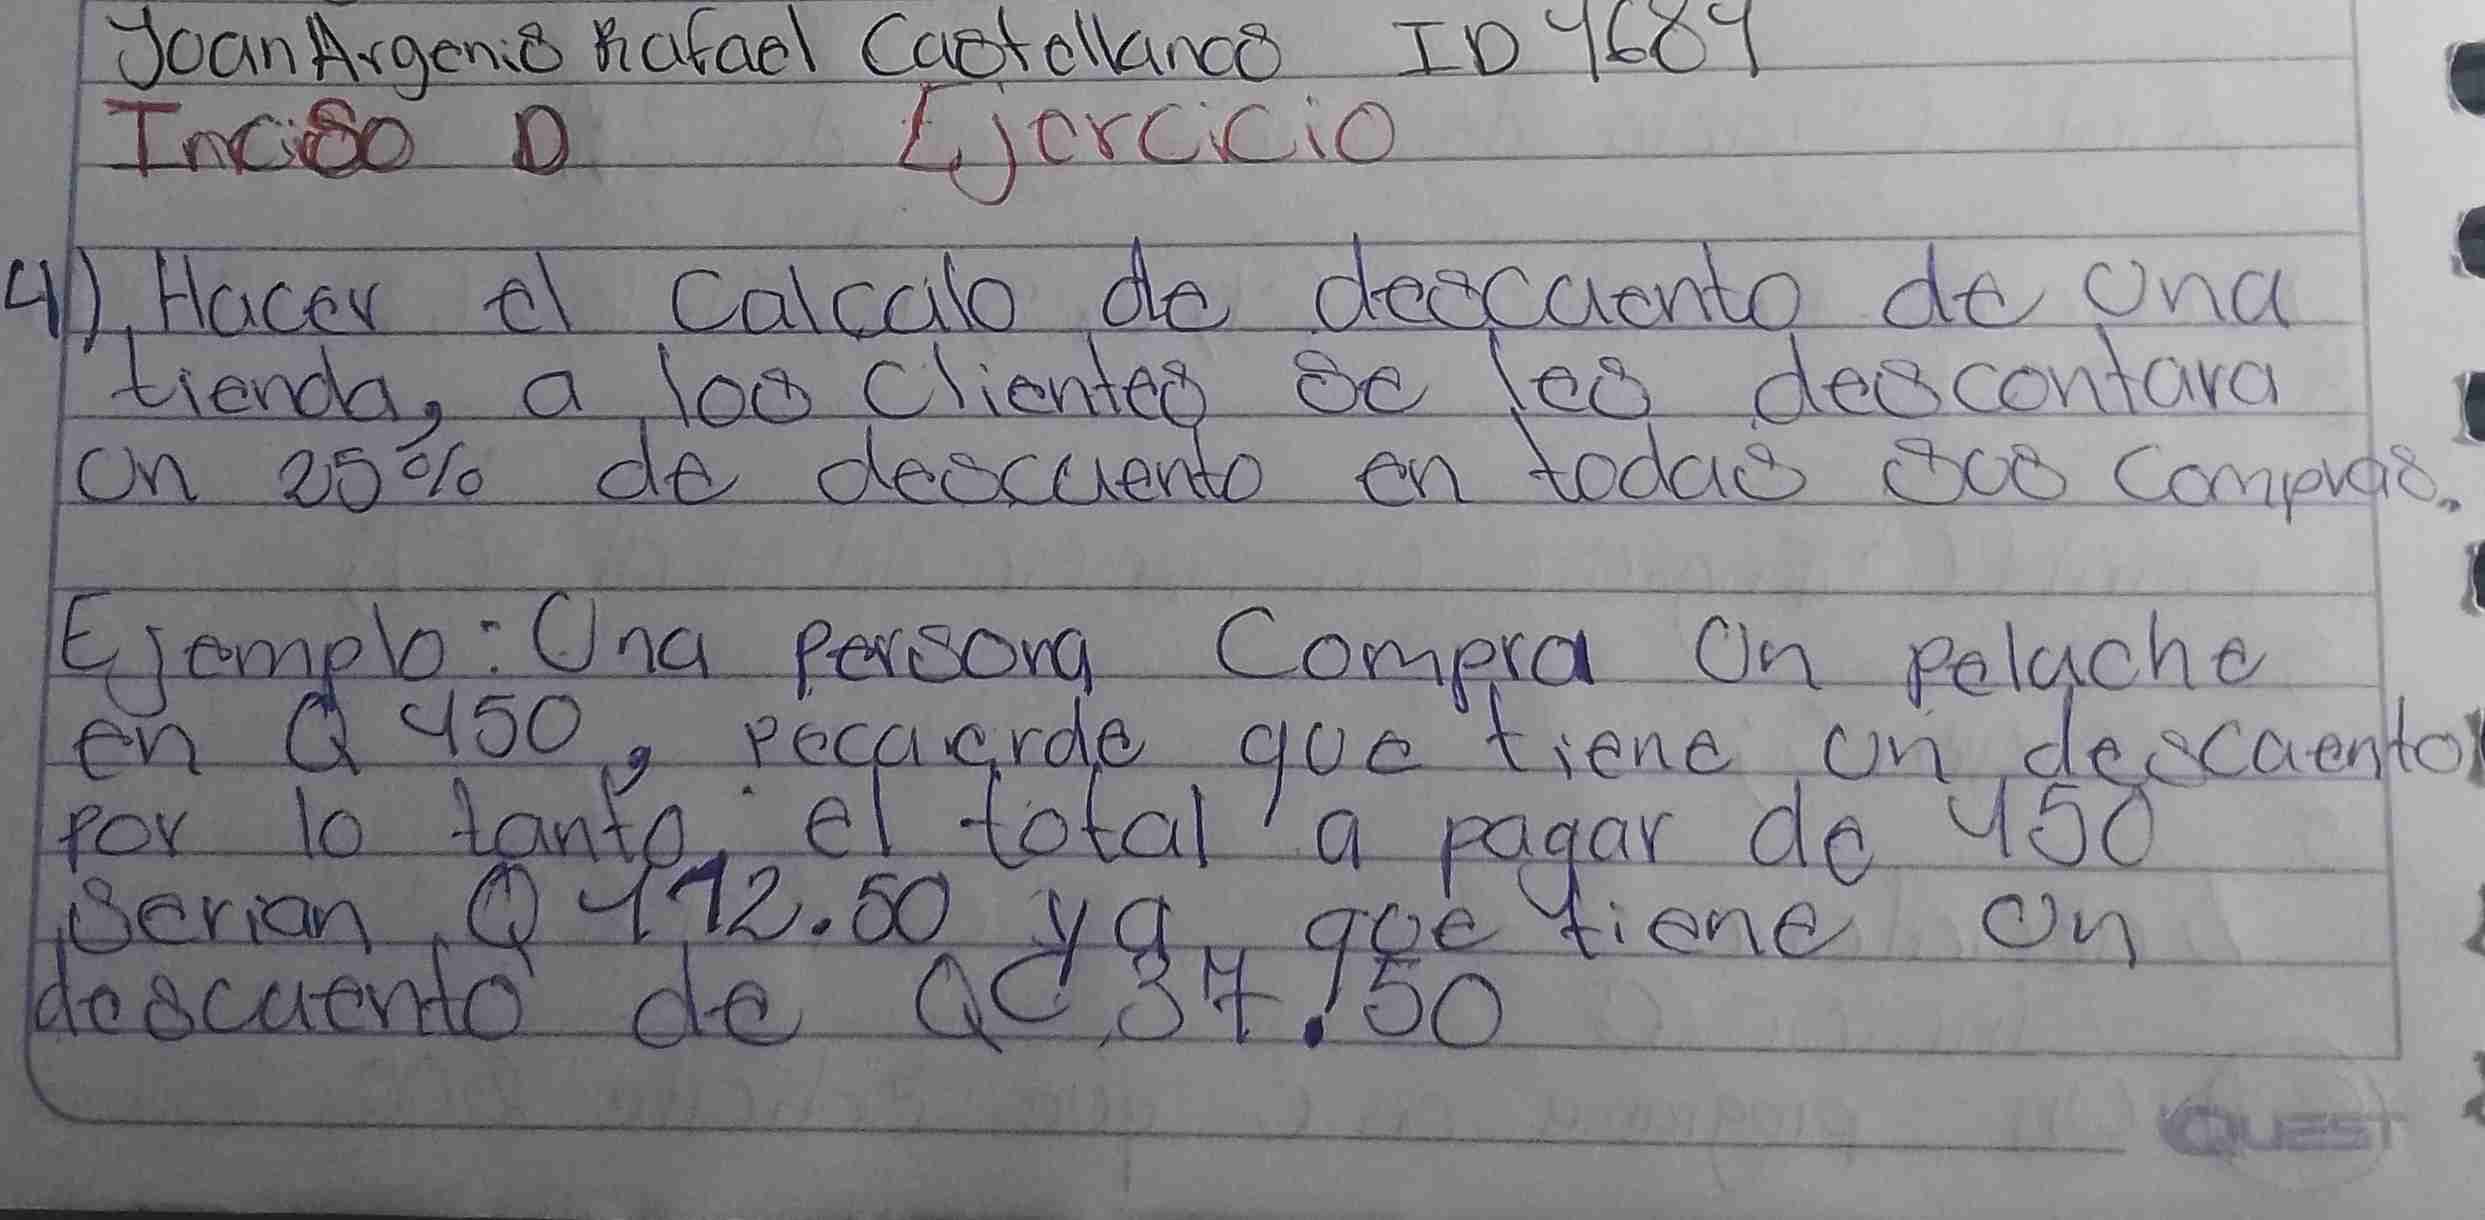 Joan Argenis Rafael Castellanos ID 4684
Inciso D Ejercicio
4). Hacer el Calculo de descuento de una
tienda, a los clientes se les descontara
un 25% de descuento en todas sus compras.
Ejemplo: Una persona Compra un peluche
en Q 450, recuerde que tiene un descuento
por lo tanto, el total a pagar de 450
serian Q 412.50 ya que tiene un
descuento de Q 37.50
QUEST